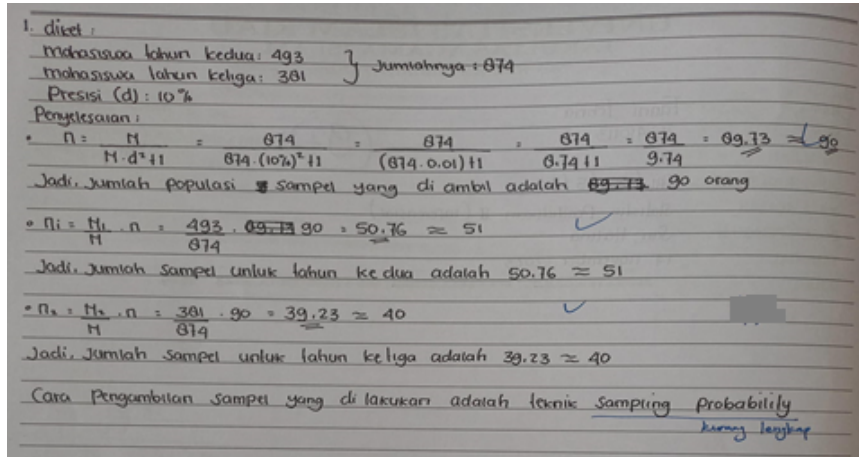 1. diket :
mahasiswa tahun kedua : 493
mahasiswa tahun ketiga : 381 } Jumlahnya : 874
Presisi (d) : 10%
Penyelesaian :
• n = N / N.d²+1 = 874 / 874.(10%)²+1 = 874 / (874.0.01)+1 = 874 / 8.74+1 = 874 / 9.74 = 89.73 ≈ 90
Jadi, Jumlah populasi sampel yang di ambil adalah 89.73 90 orang
• n₁ = N₁ / N . n = 493 / 874 . 89.73 90 = 50.76 ≈ 51 ✓
Jadi, Jumlah sampel untuk tahun kedua adalah 50.76 ≈ 51
• n₂ = N₂ / N . n = 381 / 874 . 90 = 39.23 ≈ 40 ✓
Jadi, Jumlah sampel untuk tahun ketiga adalah 39.23 ≈ 40
Cara Pengambilan sampel yang di lakukan adalah teknik sampling probability
kurang lengkap